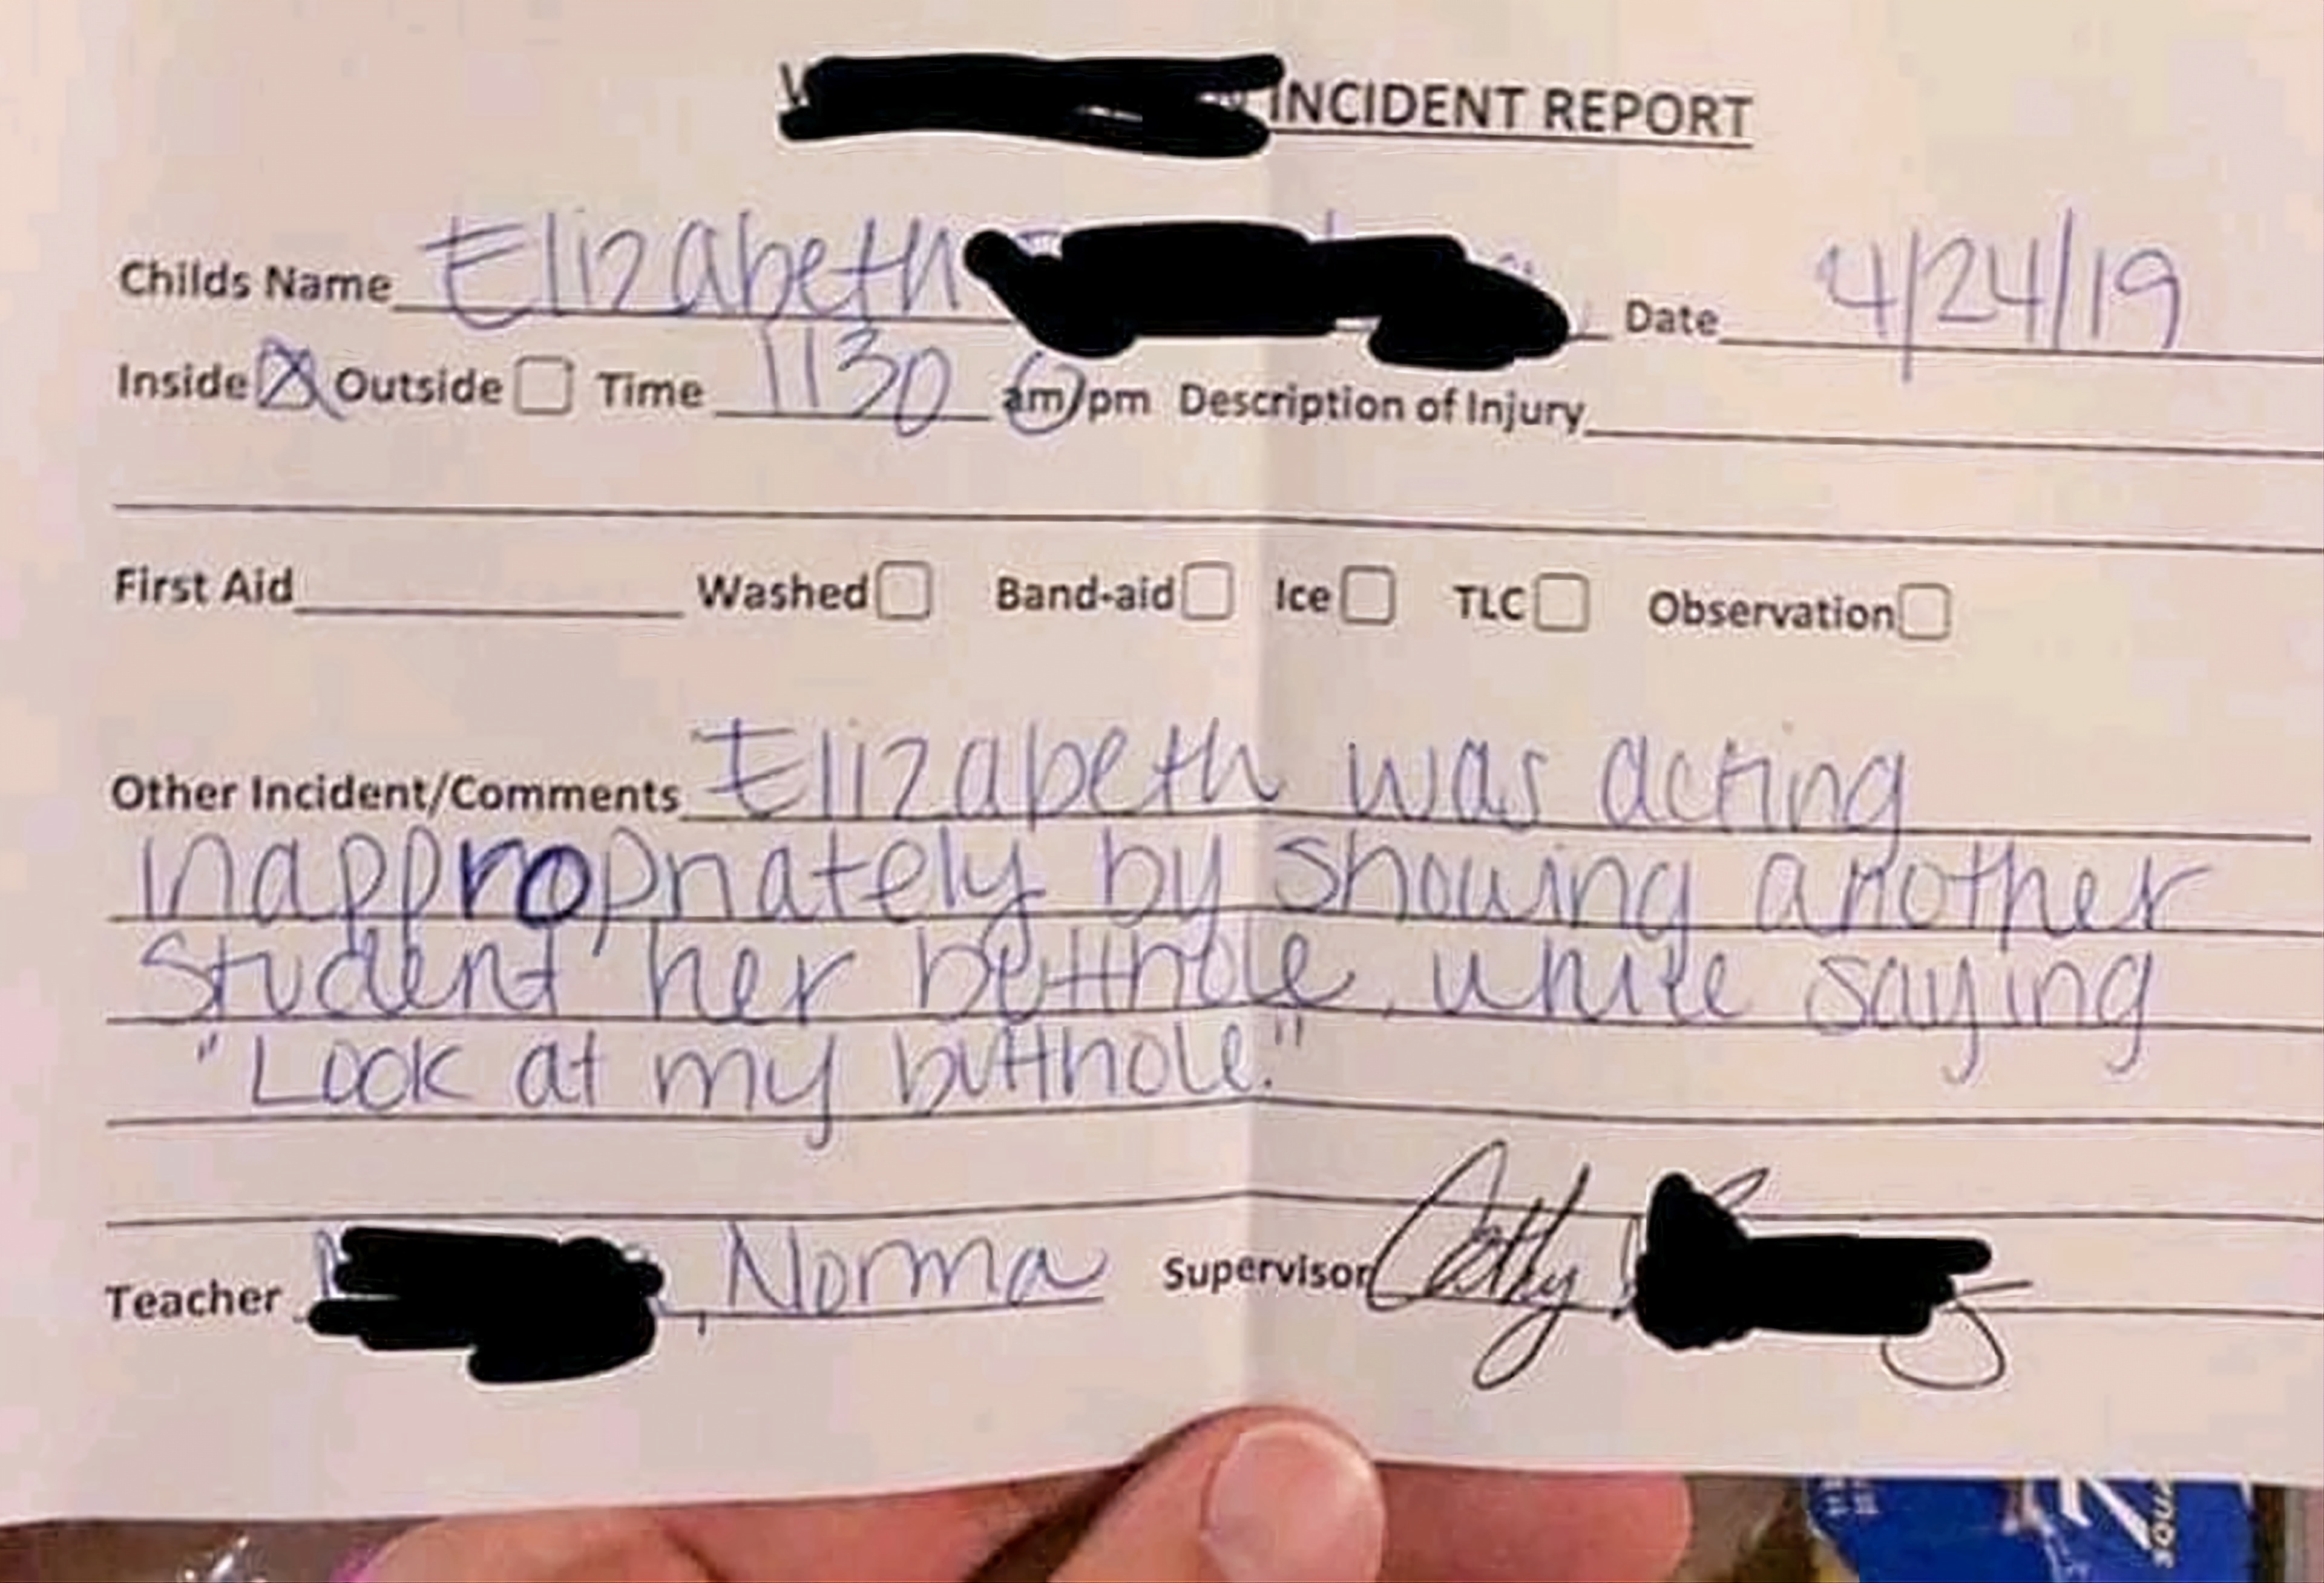 INCIDENT REPORT
Childs Name Elizabeth Date 4/24/19
Inside Outside Time 1130 am/pm Description of Injury
First Aid Washed Band-aid Ice TLC Observation
Other Incident/Comments Elizabeth was acting
inappropriately by showing another
student her butthole, while saying
"Look at my butthole."
Teacher , Norma Supervisor Cathy